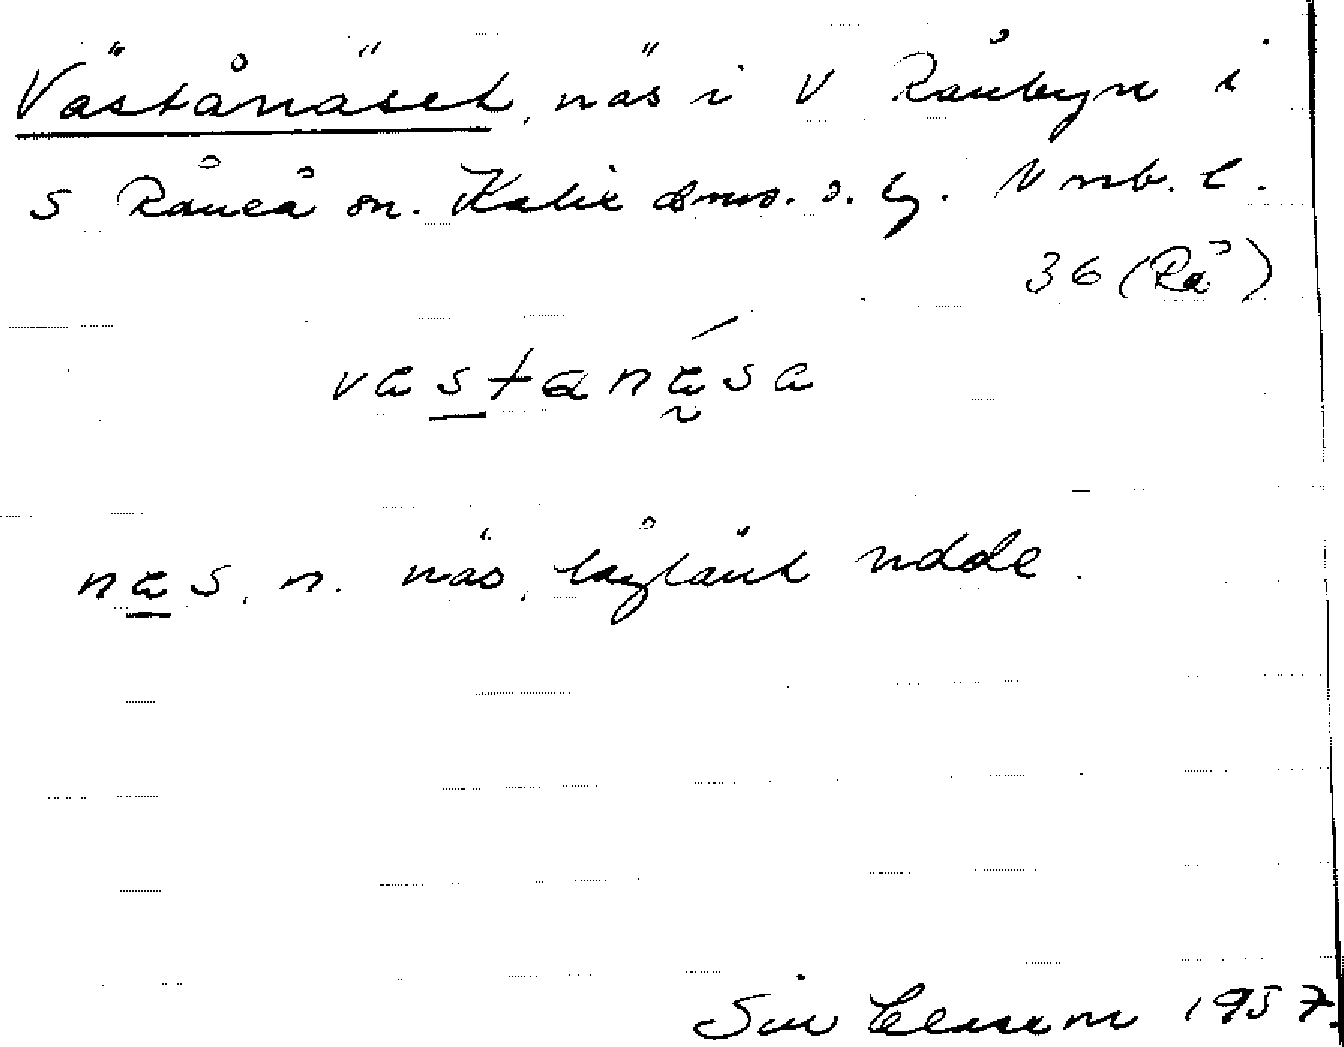 Västånäset, näs i V Rånbyn i
S Råneå sn. Kalix dms. o. tg. Nnb. l.
36 (Rå)
västanä́sa
näs, n. näs, låglänt udde.
Siv 1957.